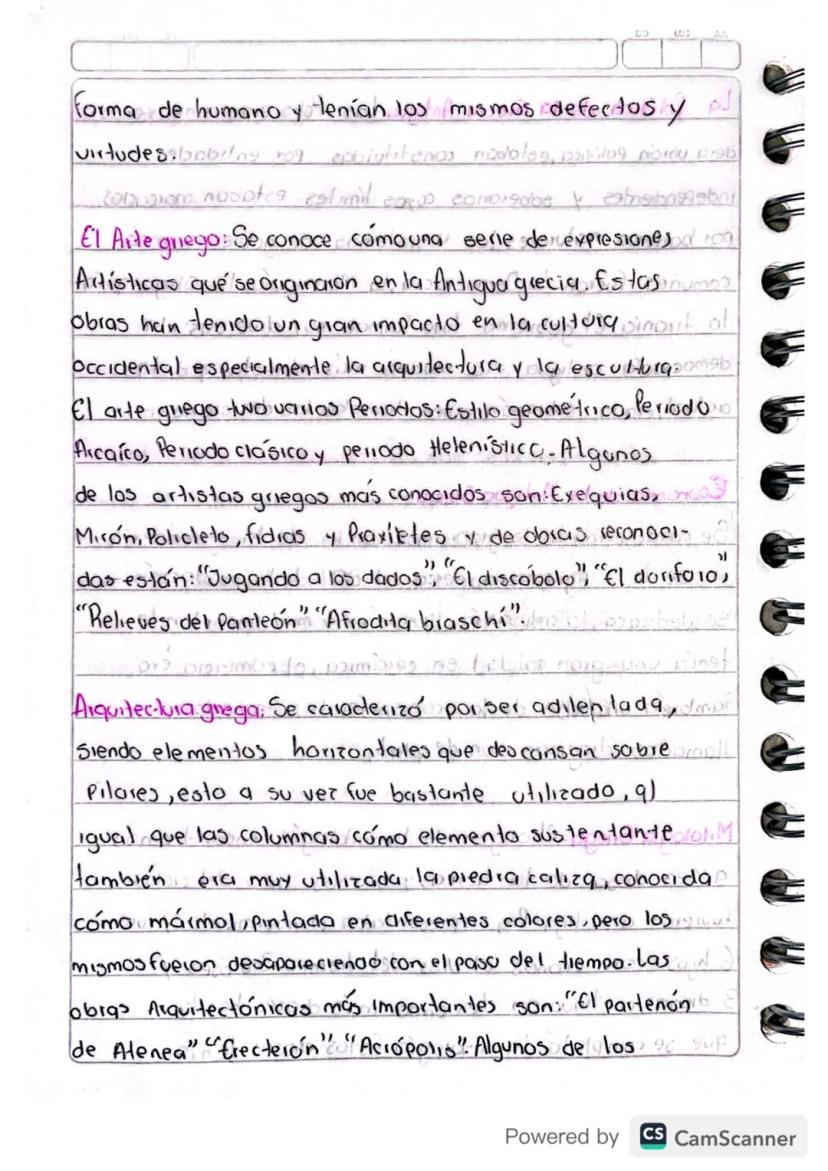 forma de humano y tenían los mismos defectos y
virtudes.
El Arte griego: Se conoce cómo una serie de expresiones
Artísticas qué se originaron en la Antigua grecia. Estas
obras han tenido un gran impacto en la cultura
occidental especialmente la arquitectura y la escultura.
El arte griego tuvo varios Periodos: Estilo geométrico, Periodo
Arcaíco, Periodo clásico y periodo Helenístico. Algunos
de los artistas griegos más conocidos son: Exequias,
Mirón, Policleto, fidias y Praxíteles y de obras reconoci-
das están: "Jugando a los dados", "El discóbolo", "El doríforo",
"Relieves del Panteón" "Afrodita braschi".
Arquitectura griega: Se caracterizó por ser adilentada,
siendo elementos horizontales que descansan sobre
Pilares, esto a su vez fue bastante utilizado, al
igual que las columnas cómo elemento sustentante
también era muy utilizada la piedra caliza, conocida
cómo mármol, pintada en diferentes colores, pero los
mismos fueron desapareciendo con el paso del tiempo. Las
obras Arquitectónicas más importantes son: "El partenón
de Atenea" "Erecteión" "Acrópolis". Algunos de los
Powered by CS CamScanner